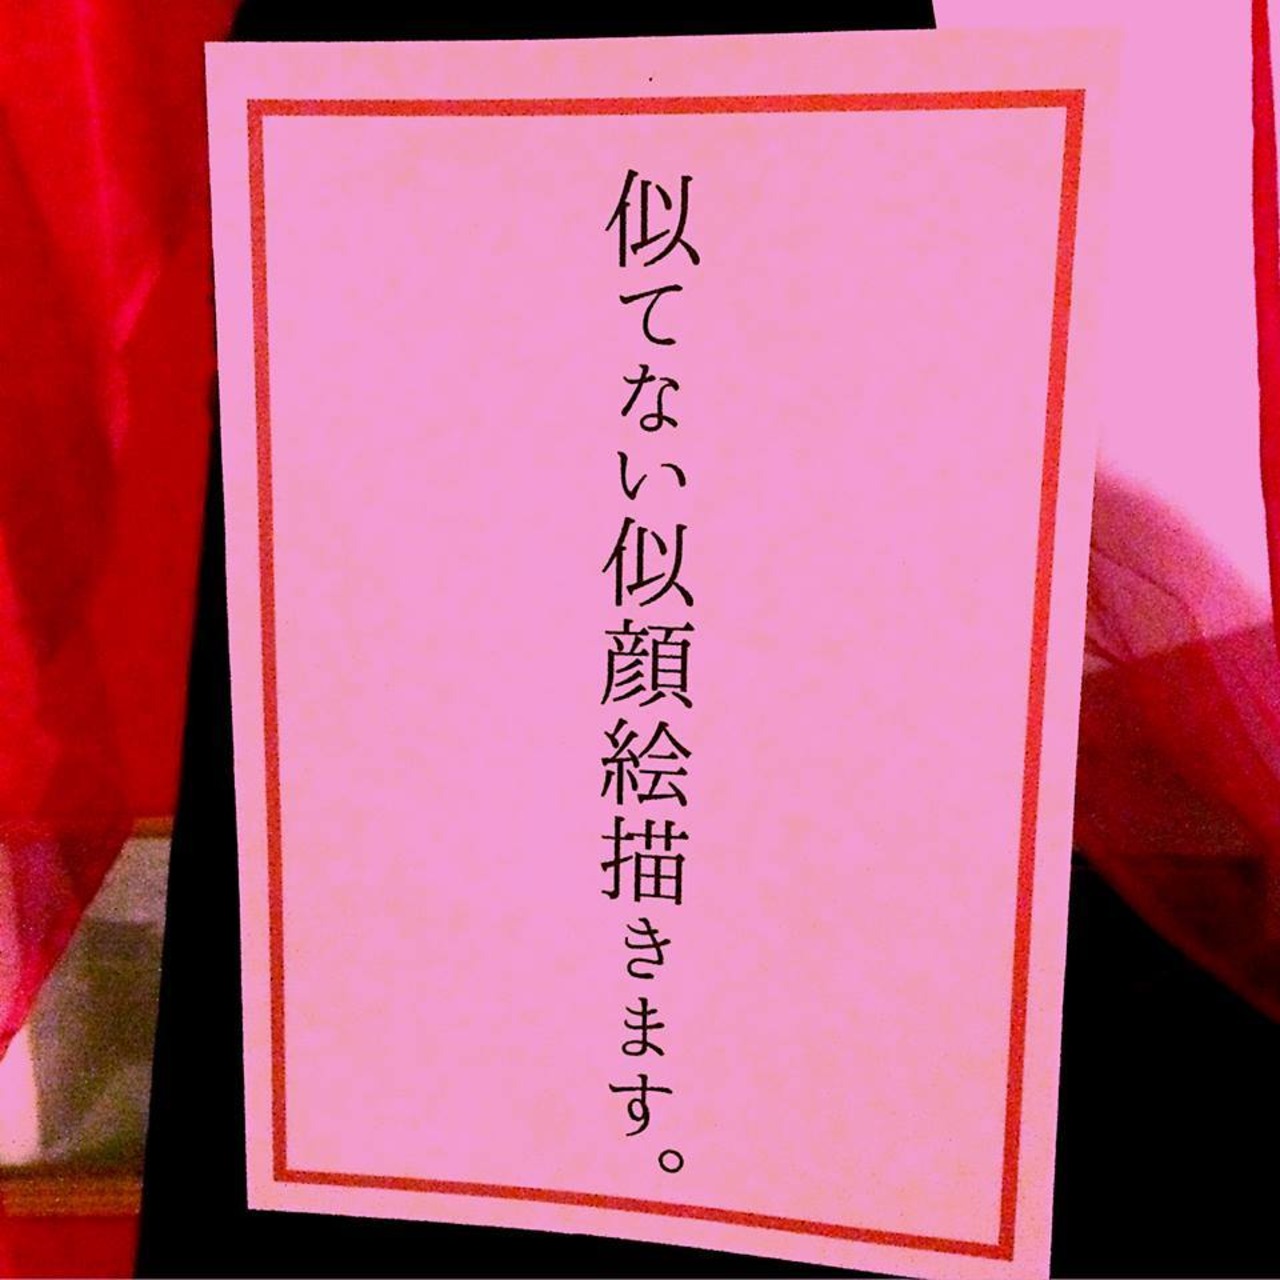 似てない似顔絵描きます。